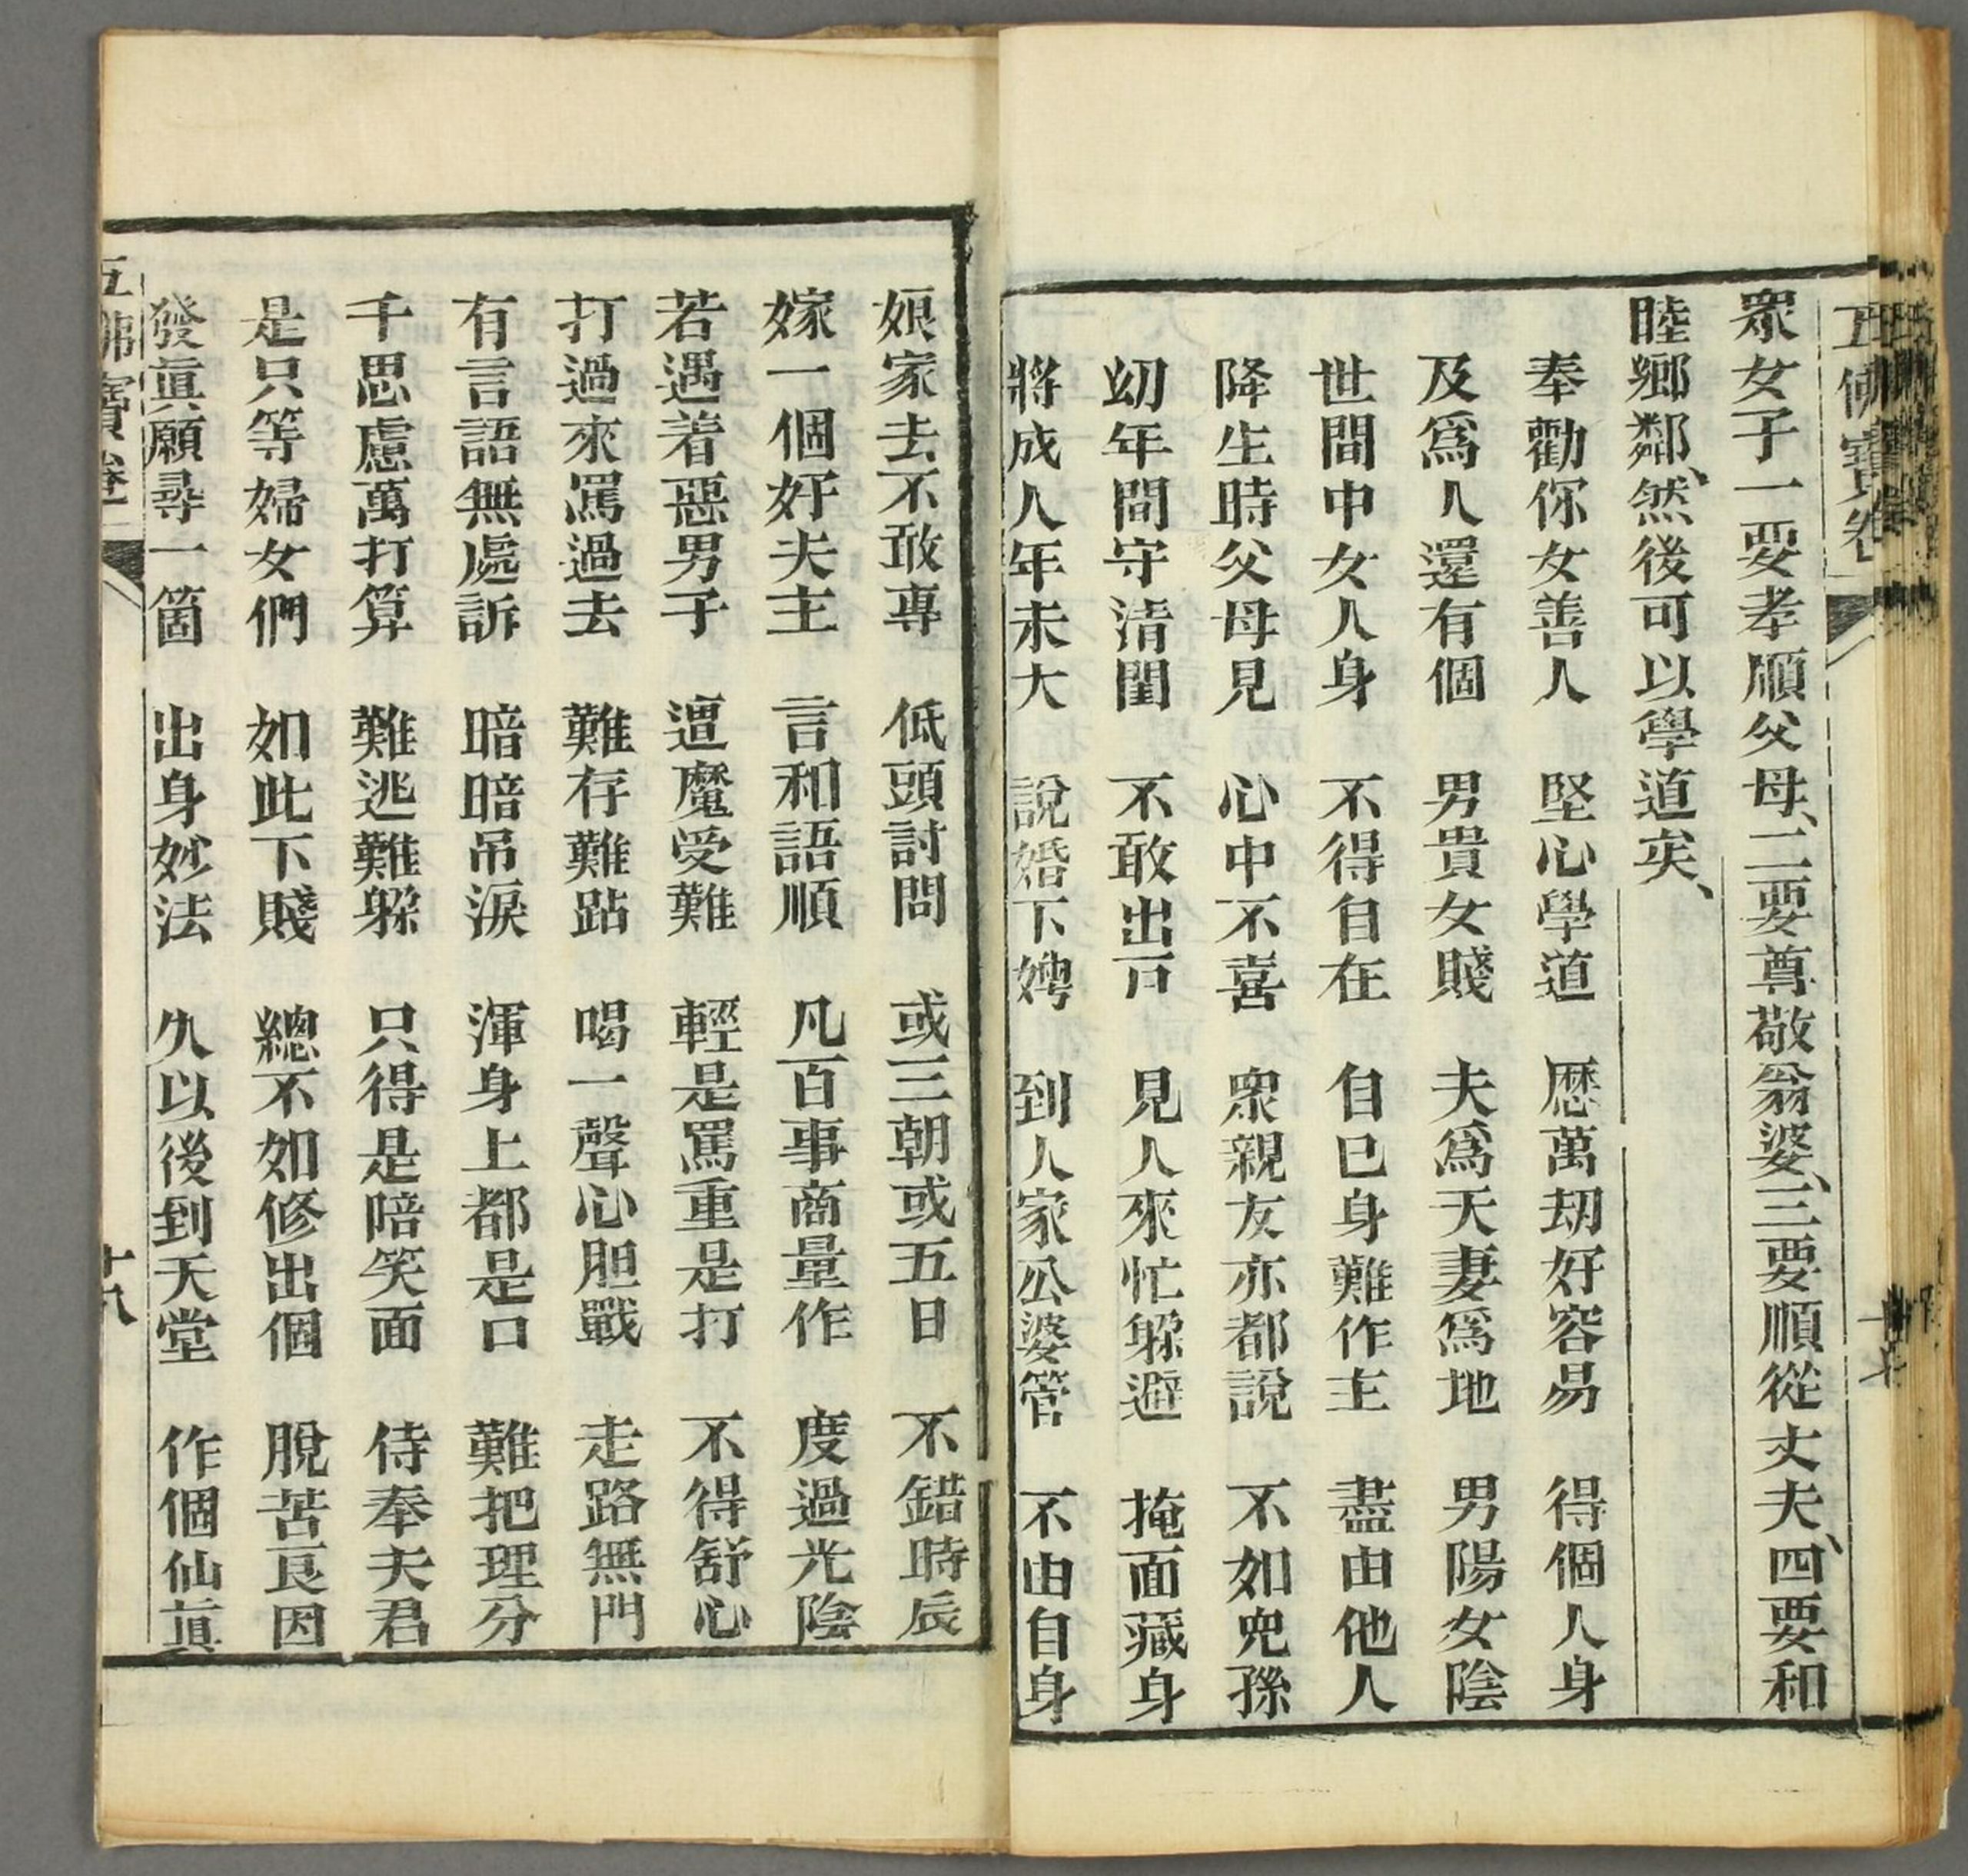 五佛寶卷
衆女子一要孝順父母、二要尊敬翁婆、三要順從丈夫、四要和
睦鄉鄰、然後可以學道矣、
奉勸你女善人 堅心學道 歷萬刼好容易 得個人身
及爲人還有個 男貴女賤 夫爲天妻爲地 男陽女陰
世間中女人身 不得自在 自己身難作主 盡由他人
降生時父母見 心中不喜 衆親友亦都說 不如兒孫
幼年間守清閨 不敢出戶 見人來忙躲避 掩面藏身
將成人年未大 說婚下娉 到人家公婆管 不由自身
娘家去不敢專 低頭討問 或三朝或五日 不錯時辰
嫁一個好夫主 言和語順 凡百事商量作 度過光陰
若遇着惡男子 遭魔受難 輕是罵重是打 不得舒心
打過來罵過去 難存難跕 喝一聲心胆戰 走路無門
有言語無處訴 暗暗吊淚 渾身上都是口 難把理分
千思慮萬打算 難逃難躲 只得是陪笑面 侍奉夫君
是只等婦女們 如此下賤 總不如修出個 脫苦良因
發眞願尋一箇 出身妙法 久以後到天堂 作個仙眞
五佛寶卷
十八